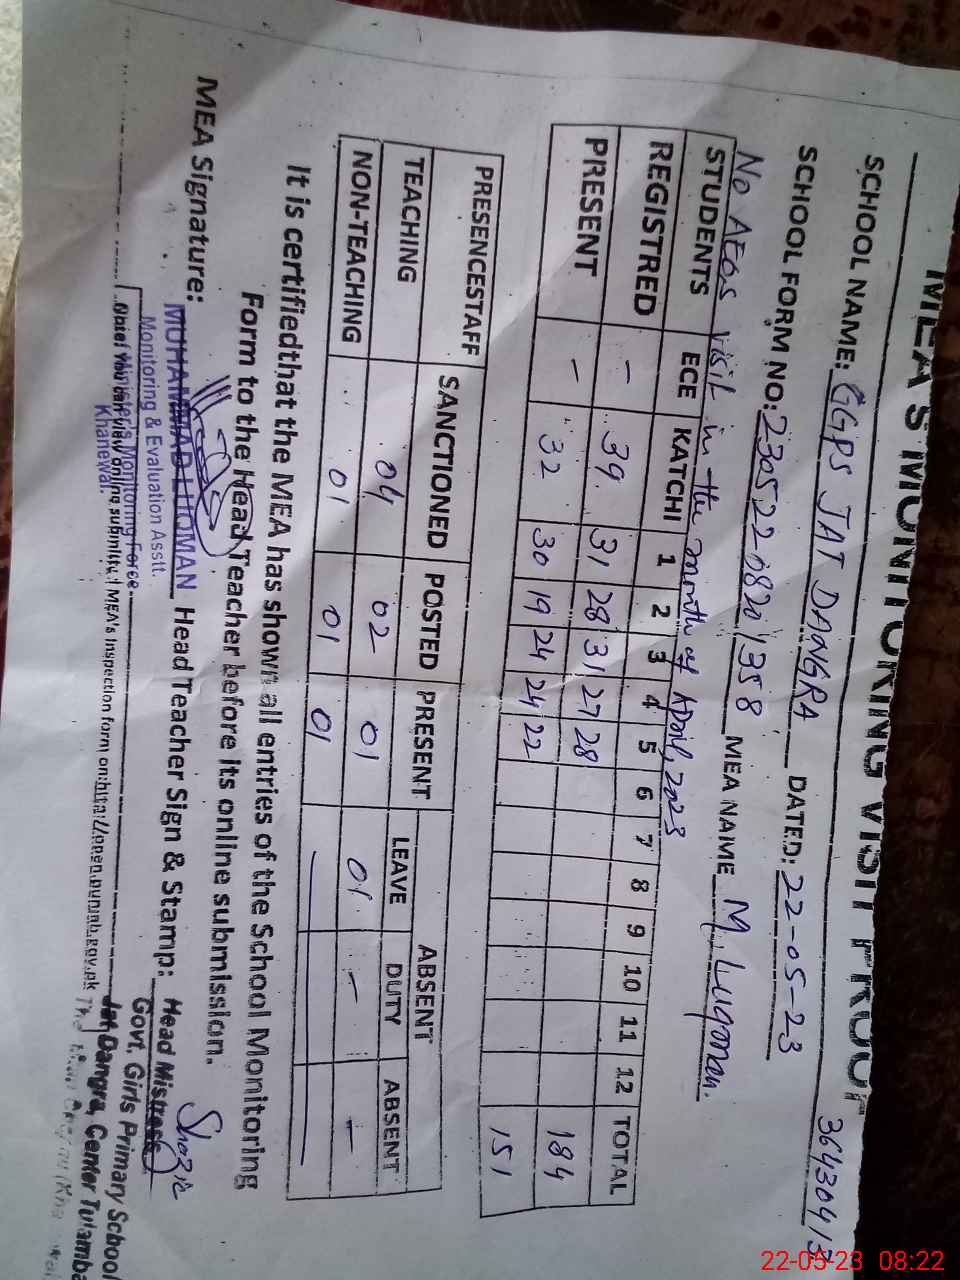 MEA'S MONITORING VISIT PROOF
SCHOOL NAME: GGPS JAT DANGRA 36430413
SCHOOL FORM NO: 2305220820/358 DATED: 22-05-23
MEA NAME M. Luqman.
No AEOs visit in the month of April, 2023
STUDENTS ECE KATCHI 1 2 3 4 5 6 7 8 9 10 11 12 TOTAL
REGISTRED - 39 31 28 31 27 28 184
PRESENT - 32 30 19 24 24 22 151
PRESENCESTAFF SANCTIONED POSTED PRESENT ABSENT
LEAVE DUTY ABSENT
TEACHING 04 02 01 01 - -
NON-TEACHING 01 01 01
It is certifiedthat the MEA has shown all entries of the School Monitoring
Form to the Head Teacher before its online submission.
MEA Signature: MUHAMMAD LUQMAN Head Teacher Sign & Stamp: Shazia
Monitoring & Evaluation Asstt.
Chief Minister's Monitoring Force
Khanewal.
Head Mistress
Govt. Girls Primary School
Jat Dangra, Center Tulamba
You can view online submitted MEA's inspection form on: http://open.punjab.gov.pk
22-05-23 08:22